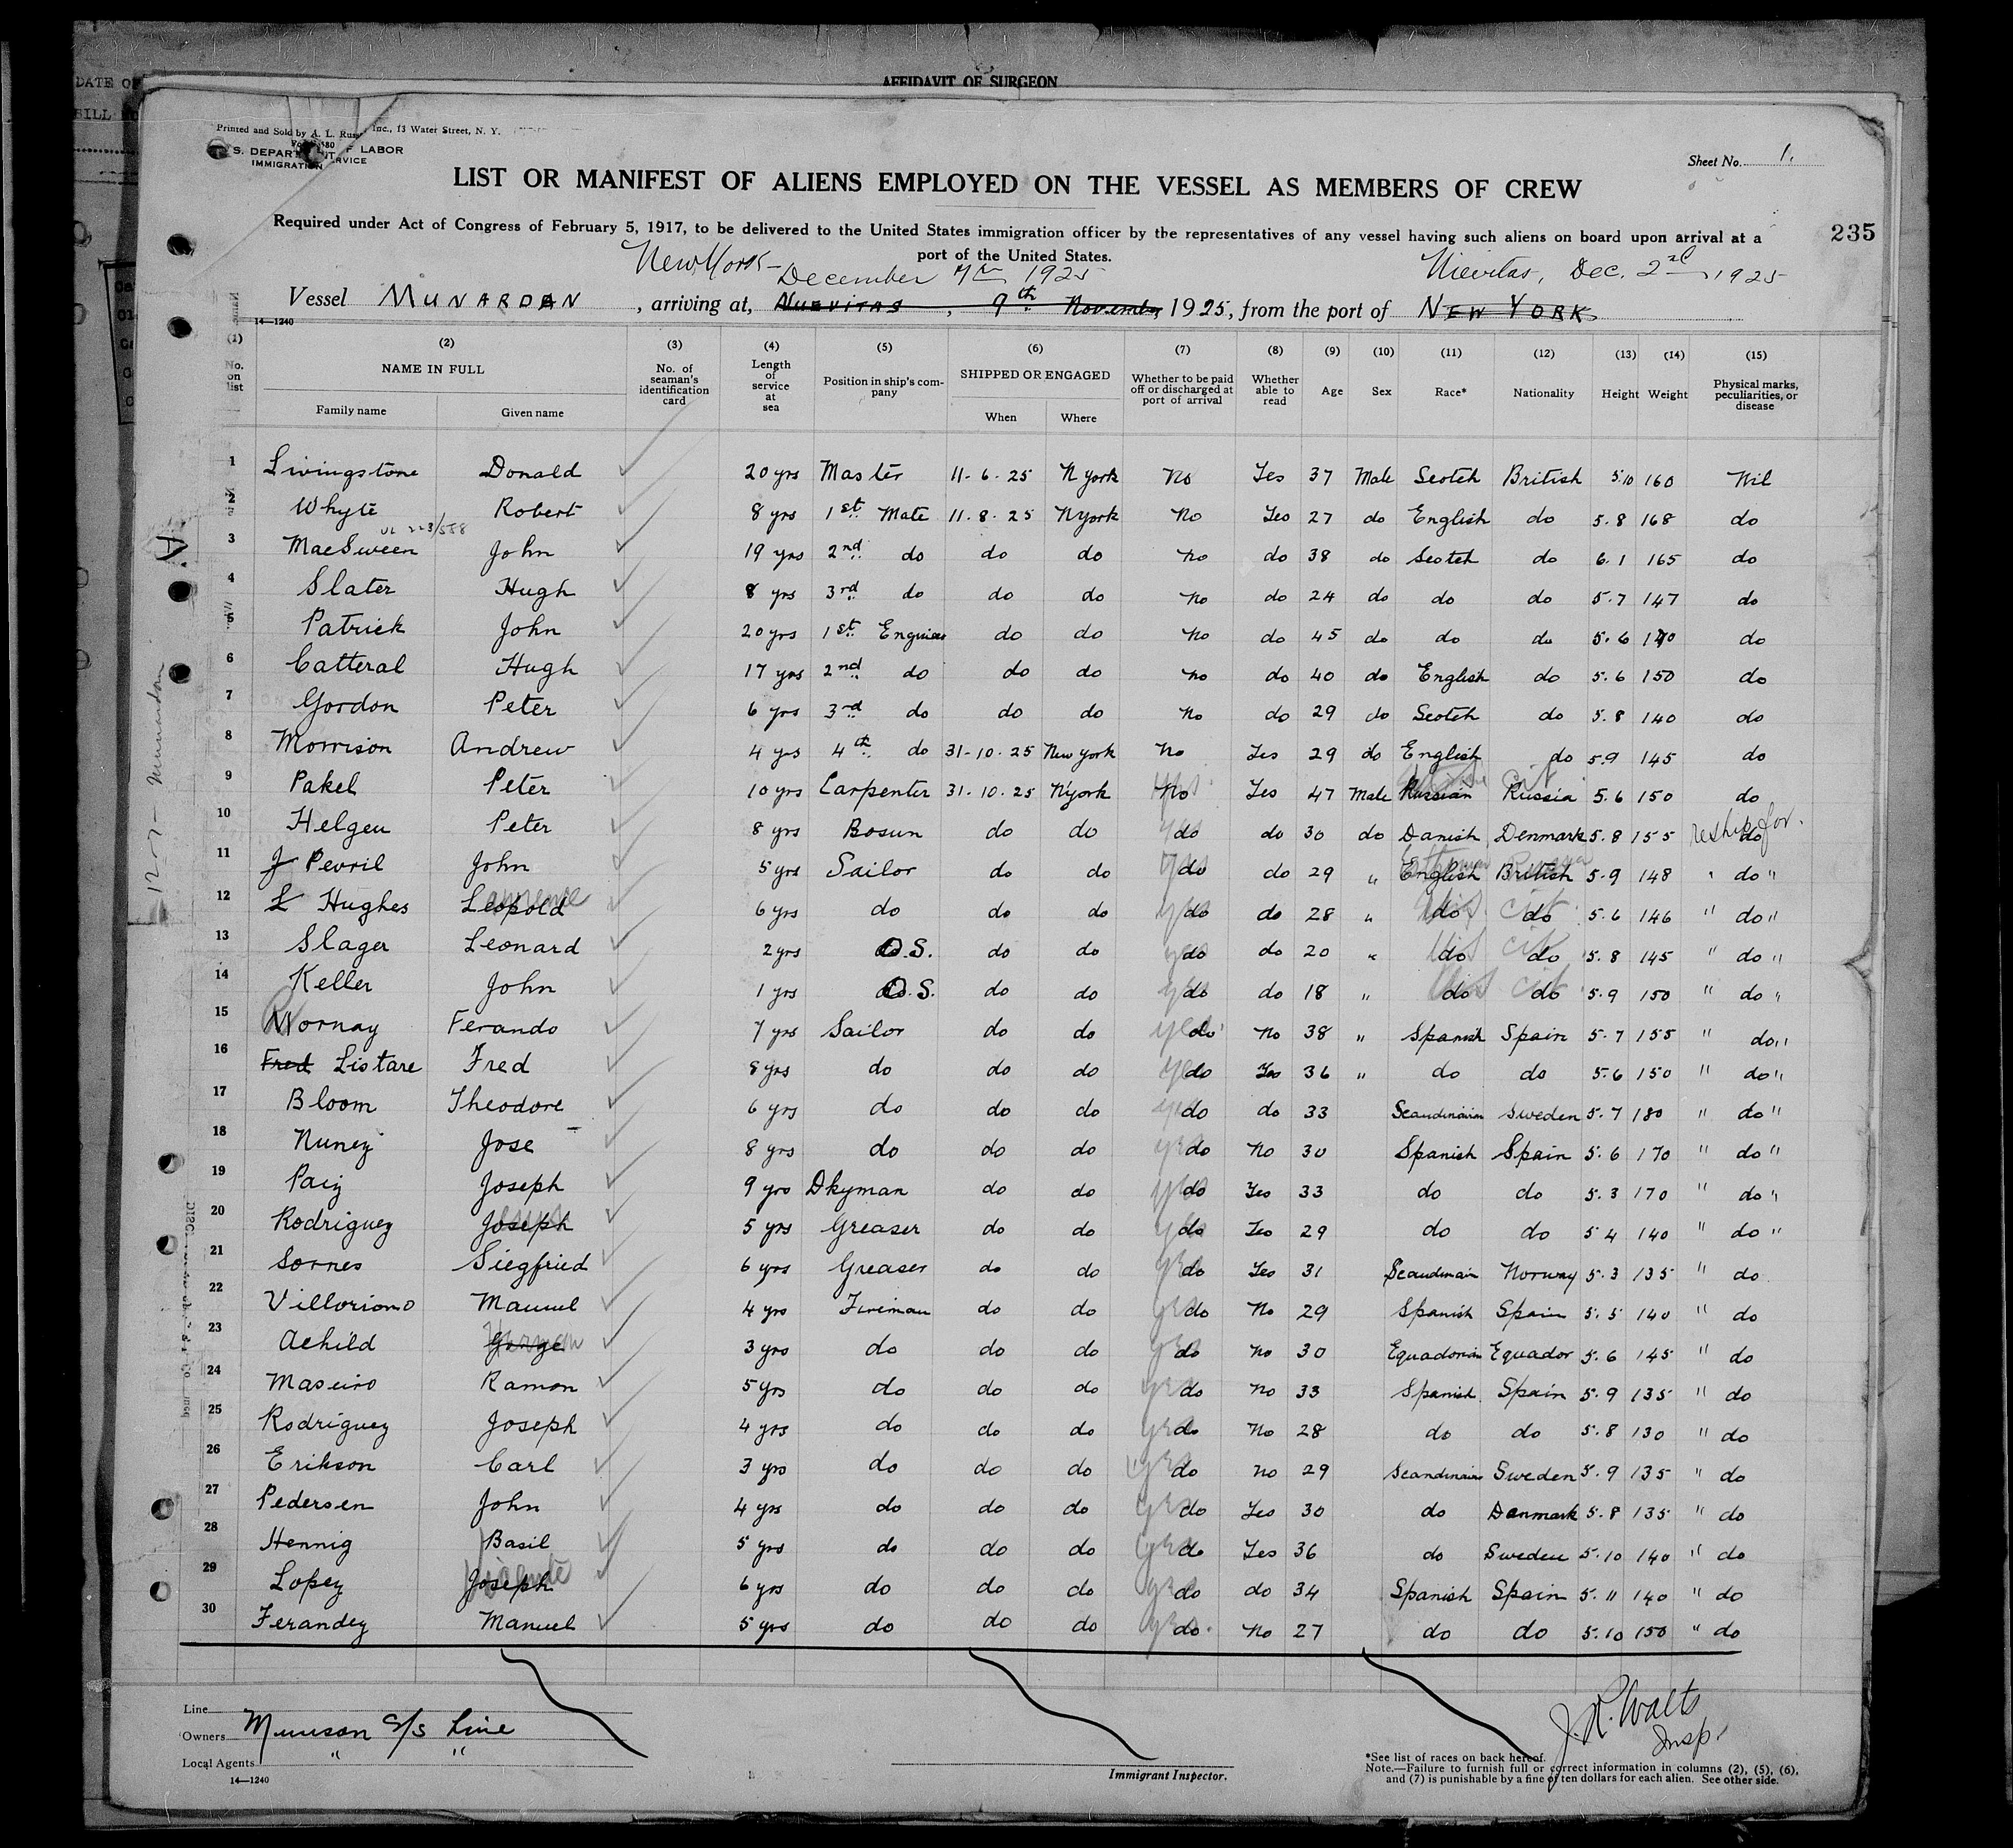 DATE OF
BILL
AFFIDAVIT OF SURGEON
Printed and Sold by A. L. Russ Inc., 13 Water Street, N. Y.
S. DEPARTMENT OF LABOR
IMMIGRATION SERVICE
Sheet No. 1.
LIST OR MANIFEST OF ALIENS EMPLOYED ON THE VESSEL AS MEMBERS OF CREW
Required under Act of Congress of February 5, 1917, to be delivered to the United States immigration officer by the representatives of any vessel having such aliens on board upon arrival at a
port of the United States.
235
New York - December 7th 1925 Nuevitas, Dec. 2nd 1925
Vessel MUNARDAN, arriving at, NUEVITAS, 9th November 1925, from the port of NEW YORK
14—1240
(1) (2) (3) (4) (5) (6) (7) (8) (9) (10) (11) (12) (13) (14) (15)
No. on list NAME IN FULL No. of seaman's identification card Length of service at sea Position in ship's company SHIPPED OR ENGAGED Whether to be paid off or discharged at port of arrival Whether able to read Age Sex Race* Nationality Height Weight Physical marks, peculiarities, or disease
Family name Given name When Where
1 Livingstone Donald 20 yrs Master 11-6-25 N York No Yes 37 Male Scotch British 5.10 160 Nil
2 Whyte Robert 8 yrs 1st Mate 11.8.25 N York No Yes 27 do English do 5.8 168 do
3 MacSween John 19 yrs 2nd do do do No do 38 do Scotch do 6.1 165 do
4 Slater Hugh 8 yrs 3rd do do do No do 24 do do do 5.7 147 do
5 Patrick John 20 yrs 1st Engineer do do No do 45 do do do 5.6 140 do
6 Catteral Hugh 17 yrs 2nd do do do No do 40 do English do 5.6 150 do
7 Gordon Peter 6 yrs 3rd do do do No do 29 do Scotch do 5.8 140 do
8 Morrison Andrew 4 yrs 4th do 31-10-25 New York No Yes 29 do English do 5.9 145 do
9 Pakel Peter 10 yrs Carpenter 31-10-25 N York No Yes 47 Male Russian Russia 5.6 150 do
10 Helgeu Peter 8 yrs Bosun do do yes do do 30 do Danish Denmark 5.8 155 reship for. do
11 J Pevril John 5 yrs Sailor do do yes do do 29 " English British 5.9 148 " do "
12 L Hughes Leopold Lawrence 6 yrs do do do yes do do 28 " do U.S. do cit 5.6 146 " do "
13 Slager Leonard 2 yrs O.S. do do yes do do 20 " do U.S. do cit 5.8 145 " do "
14 Keller John 1 yrs O.S. do do yes do do 18 " do U.S. do cit 5.9 150 " do "
15 Mornay Ferando 7 yrs Sailor do do yes do No 38 " Spanish Spain 5.7 155 " do "
16 Fred Listare Fred 8 yrs do do do yes do Yes 36 " do do 5.6 150 " do "
17 Bloom Theodore 6 yrs do do do yes do do 33 Scandinavian Sweden 5.7 180 " do "
18 Nunez Jose 8 yrs do do do yes do No 30 Spanish Spain 5.6 170 " do "
19 Paiz Joseph 9 yrs Dkyman do do yes do Yes 33 do do 5.3 170 " do "
20 Rodriguez Joseph 5 yrs Greaser do do yes do Yes 29 do do 5 4 140 " do "
21 Sornes Siegfried 6 yrs Greaser do do yes do Yes 31 Scandinavian Norway 5.3 135 " do
22 Villoriono Manuel 4 yrs Fireman do do yes do No 29 Spanish Spain 5.5 140 " do
23 Achild George Herman 3 yrs do do do yes do No 30 Equadorian Equador 5.6 145 " do
24 Maseiro Ramon 5 yrs do do do yes do No 33 Spanish Spain 5.9 135 " do
25 Rodriguez Joseph 4 yrs do do do yes do No 28 do do 5.8 130 " do
26 Erikson Carl 3 yrs do do do yes do No 29 Scandinavian Sweden 5.9 135 " do
27 Pedersen John 4 yrs do do do yes do Yes 30 do Danmark 5.8 135 " do
28 Hennig Basil 5 yrs do do do yes do Yes 36 do Sweden 5.10 140 " do
29 Lopez Joseph Vicente 6 yrs do do do yes do do 34 Spanish Spain 5.11 140 " do
30 Ferandez Manuel 5 yrs do do do yes do No 27 do do 5.10 150 " do
Line
Owners Munson S/S Line
Local Agents " "
14—1240
J. R. Walts
Insp.
Immigrant Inspector.
*See list of races on back hereof.
Note.—Failure to furnish full or correct information in columns (2), (5), (6),
and (7) is punishable by a fine of ten dollars for each alien. See other side.